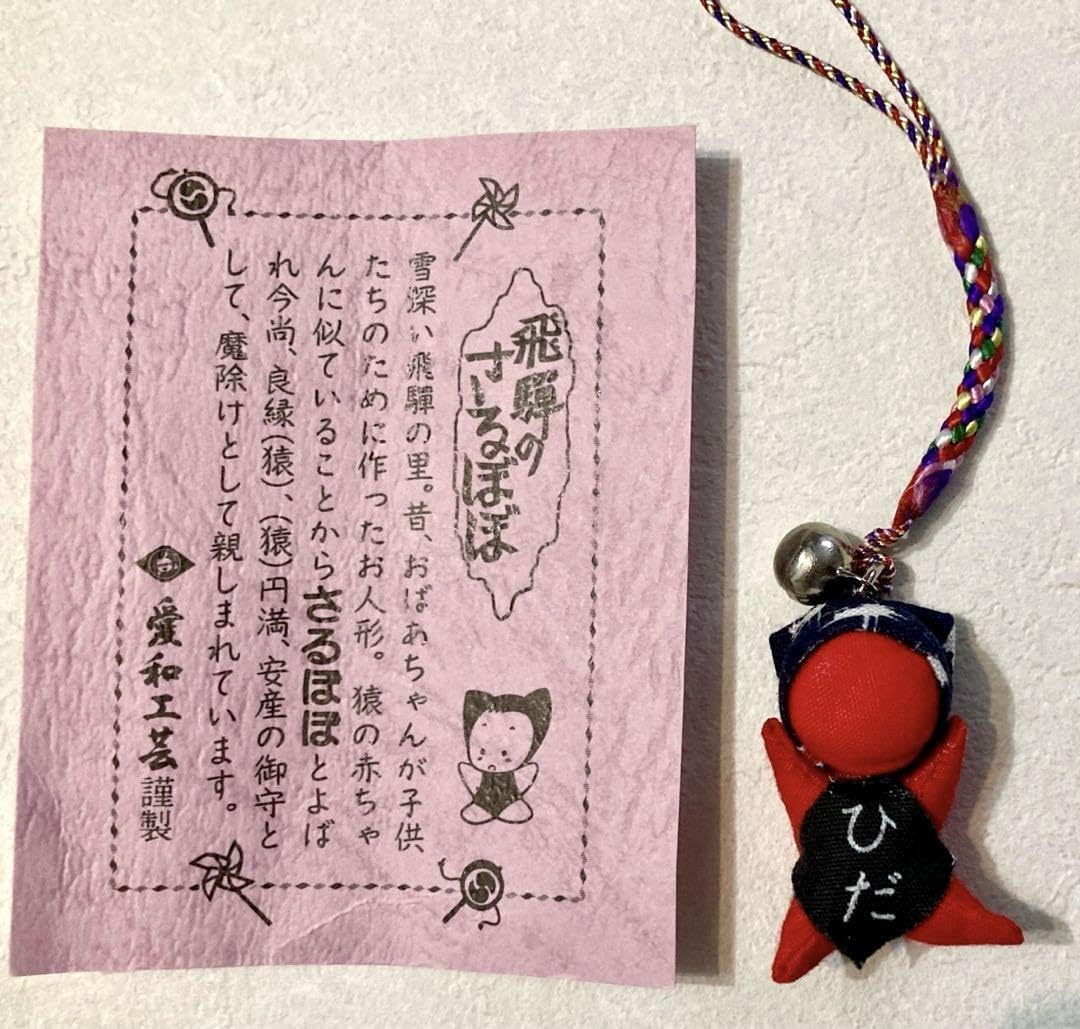 飛騨の
さるぼぼ
雪深い飛騨の里。昔、おばあちゃんが子供、
たちのために作ったお人形。猿の赤ちゃ
んに似ていることからさるぼぼとよば
れ今尚、良縁(猿)、(猿)円満、安産の御守と
して、魔除けとして親しまれています。
愛和工芸謹製
ひだ